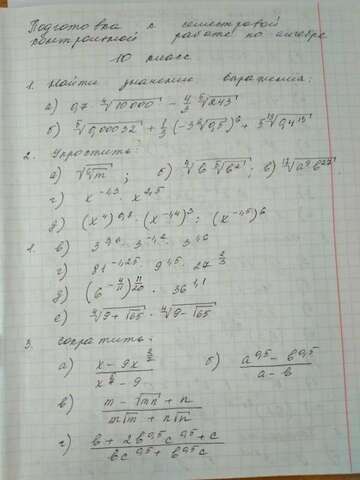 Подготовка к семестровой
контрольной работе по алгебре
10 класс
1. Найти значение выражения:
а) 0,7 · ∜10000 − 4/3 · ⁵√243
б) ⁵√0,00032 + 1/3 (−3 ⁶√0,5)⁶ + 5 ¹⁵√0,4¹⁵
2. Упростить:
а) √⁶√m ; б) ∜(b · ⁵√b²) ; в) ¹²√(a⁹b²⁷)
г) x^(−1,3) · x^(2,5)
д) (x⁴)^(0,8) · (x^(−1,4))³ : (x^(−1,5))⁶
1. в) 3^(9,6) · 3^(−4,2) · 3^(1,6)
г) 81^(−1,25) · 9^(1,5) · 27^(2/3)
д) (6^(−4/11))^(11/20) · 36^(1,1)
е) ∜(9+√65) · ∜(9−√65)
3. Сократить:
а) (x − 9x^(1/2)) / (x^(1/2) − 9) б) (a^(0,5) − b^(0,5)) / (a − b)
в) (m − √(mn) + n) / (m√m + n√n)
г) (b + 2b^(0,5)c^(0,5) + c) / (bc^(0,5) + b^(0,5)c)